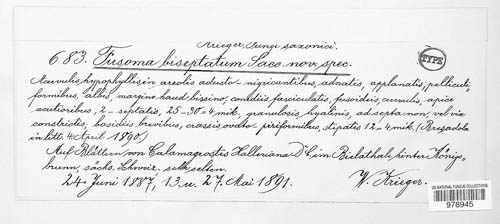 Krieger, Fungi saxonici.
683. Fusoma biseptatum Sacc. nov. spec.
TYPE
Acervulis hypophyllis in areolis adusto-nigricantibus, adnatis, applanatis, pelliculi-
formibus, albis, margine haud bissino; conidiis fasciculatis, fusoideis, curvulis, apice
acutioribus, 2-septatis, 25-30=4 mik., granulosis, hyalinis, ad septa non vel vix
constrictis; basidiis brevibus, crassis, ovato-piriformibus, stipatis 12=4 mik. (Bresadola
in litt. 4. April 1890.)
Auf Blättern von Calamagrostis Halleriana DC. im Bielathale, hinter Königs-
brunn, sächs. Schweiz. sehr selten.
24. Juni 1887, 13. u. 27. Mai 1891. W. Krieger.
US NATIONAL FUNGUS COLLECTIONS
978945